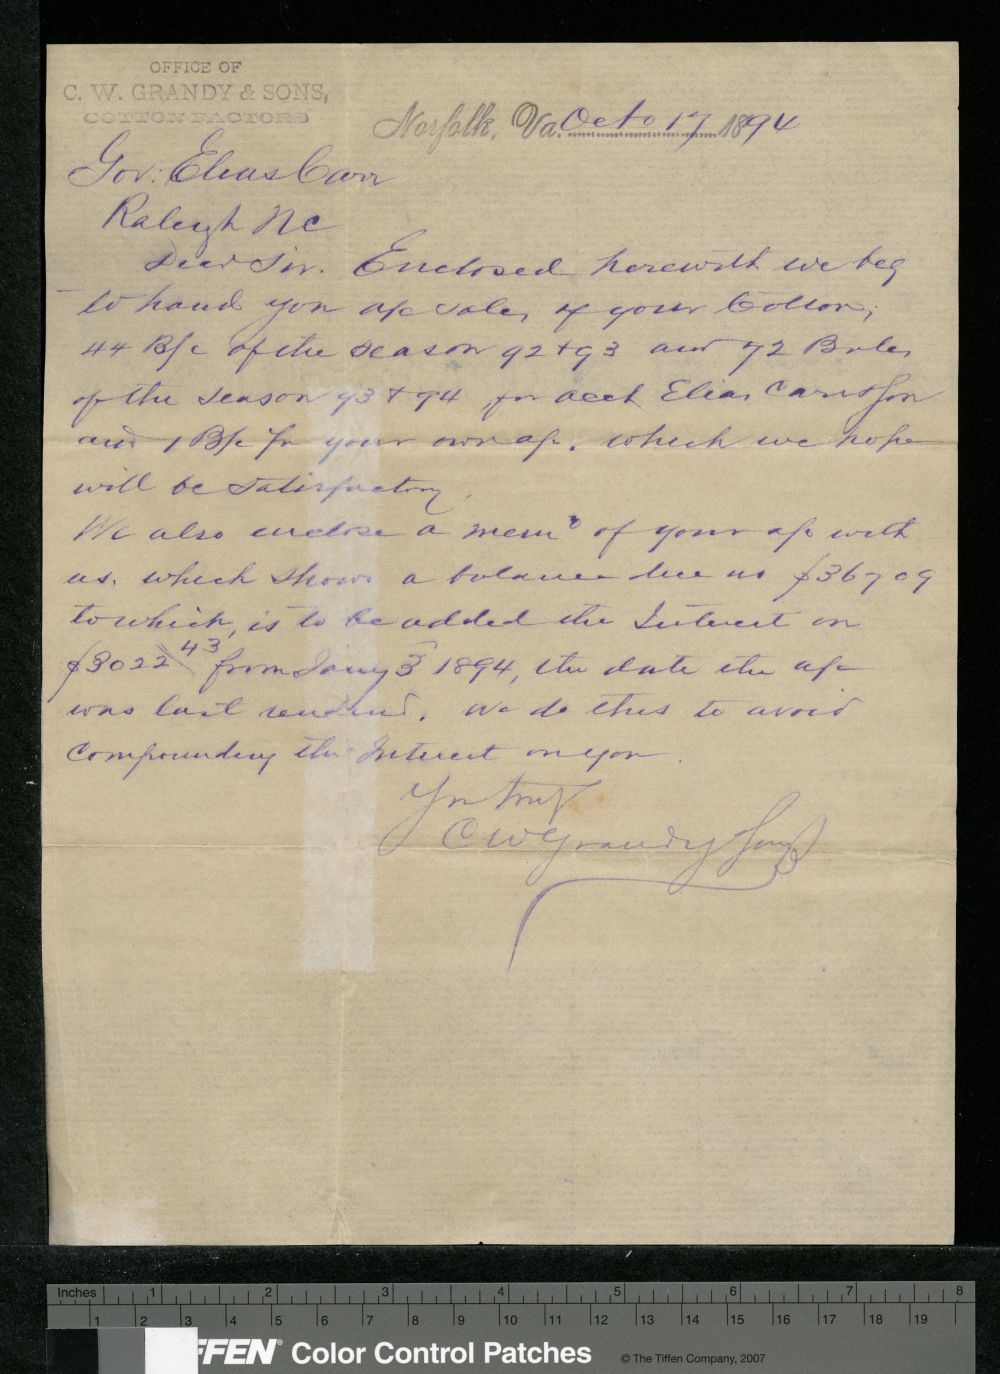 OFFICE OF
C. W. GRANDY & SONS,
COTTON FACTORS
Norfolk, Va. Octo 17 1894
Gov: Elias Carr
Raleigh NC
Dear Sir. Enclosed herewith we beg
to hand you a/c sales of your Cotton;
44 B/c of the season 92 & 93 and 72 Bales
of the season 93 & 94 for acct Elias Carr & Son
and 1 B/c for your own a/c. which we hope
will be satisfactory.
We also enclose a memo of your a/c with
us. which shows a balance due us $367 09
to which, is to be added the Interest on
$3022 43 from Jany 3 1894, the date the a/c
was last rendered. We do this to avoid
compounding the Interest on you.
Yrs truly
C W Grandy & Sons
Inches 1 2 3 4 5 6 7 8
1 2 3 4 5 6 7 8 9 10 11 12 13 14 15 16 17 18 19
FFEN® Color Control Patches © The Tiffen Company, 2007